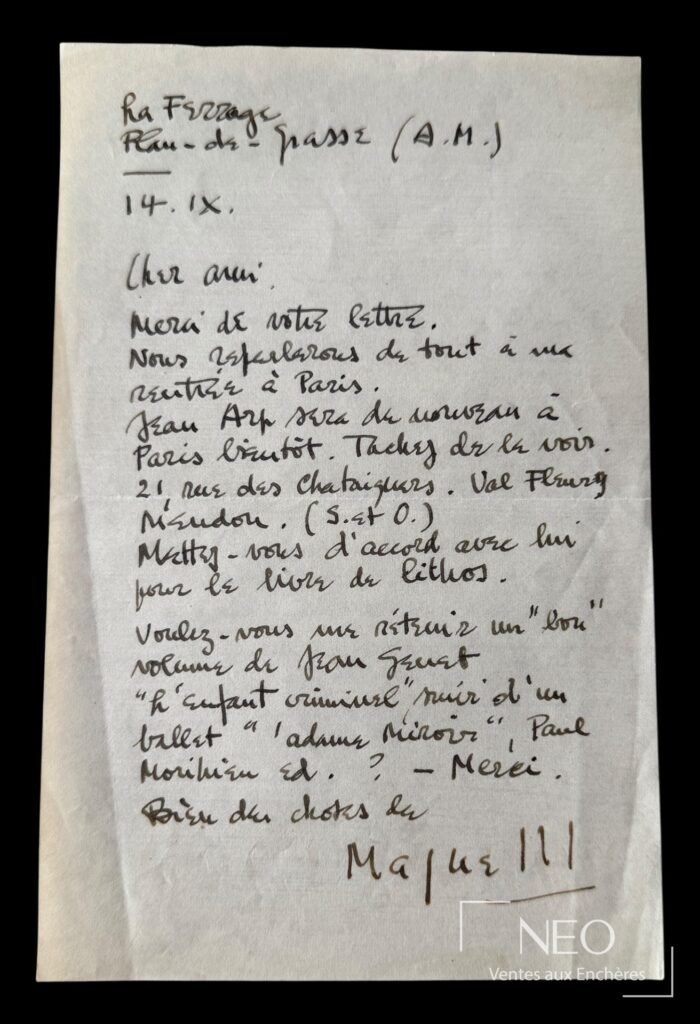 La Ferrage
Plan-de-Grasse (A.M.)
14.IX.
Cher ami,
Merci de votre lettre.
Nous reparlerons de tout à ma
rentrée à Paris.
Jean Arp sera de nouveau à
Paris bientôt. Tachez de le voir.
21, rue des Chataigners. Val Fleury
Meudon. (S. et O.)
Mettez-vous d'accord avec lui
pour le livre de lithos.
Voulez-vous me rétenir un "bon"
volume de Jean Genet
"L'enfant criminel", suivi d'un
ballet "'adame Miroir", Paul
Morihien ed. ? – Merci.
Bien des choses de
NEO
Ventes aux Enchères